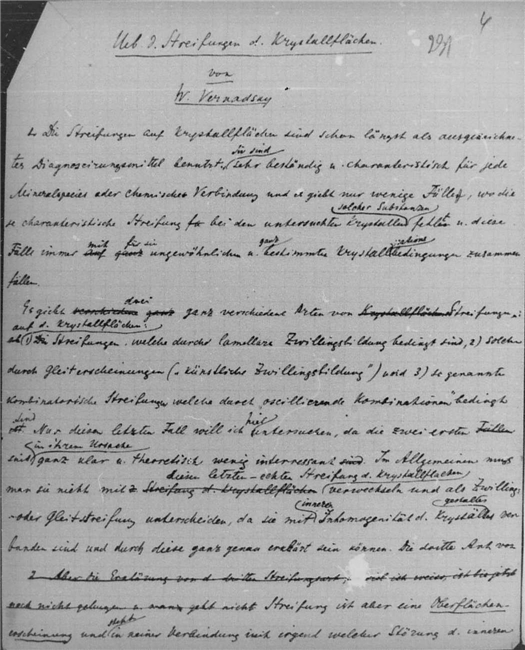 4
Ueb. d. Streifungen d. Krystallflächen.
von
W. Vernadsky
1. Die Streifungen auf Krystallflächen sind schon längst als ausgezeichne-
tes Diagnoscirungsmittel benutzt. Sie sind sehr beständig u. charakteristisch für jede
Mineralspecies oder chemische Verbindung und es giebt nur wenige Fälle, wo die
se charakteristische Streifung bei den untersuchten Krystallen solcher Substanzen fehlt u. diese
Fälle immer mit für sie ungewöhnlichen u. ganz bestimmten Krystallisationsbedingungen zusammen
fallen.
Es giebt drei ganz verschiedene Arten von Streifungen
auf d. Krystallflächen:
1) Die Streifungen welche durch lamellare Zwillingsbildung bedingt sind, 2) Solche
durch Gleiterscheinungen („künstliche Zwillingsbildung") und 3) so genannte
kombinatorische Streifung welche durch oscillierende Kombinationen bedingt
sind. Nur diesen letzten Fall will ich hier untersuchen, da die zwei ersten
in ihrem Ursache
ganz klar u. theoretisch wenig interressant sind. Im Allgemeinen muss
man sie nicht mit dieser letzten echten Streifung d. Krystallflächen verwechseln und als Zwillings-
oder Gleitstreifung unterscheiden, da sie mit inneren Inhomogenität d. Krystalles ver
bunden sind und durch diese ganz genau erklärt sein können. Die dritte Art von
2. Aber die Erklärung von d. dritte Streifungsart, ist bis jetzt
noch nicht gelungen u. Streifung ist aber eine Oberflächen-
erscheinung und steht in keiner Verbindung mit irgend welcher Störung d. inneren